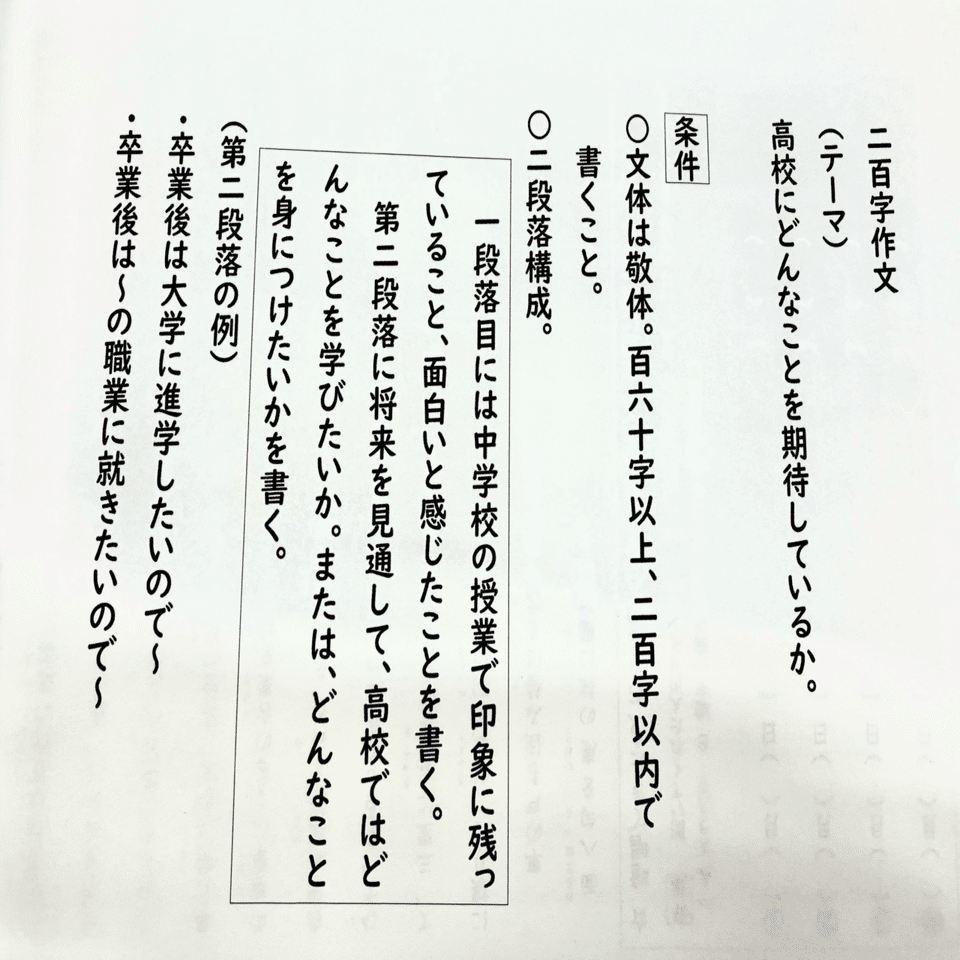 二百字作文
（テーマ）
高校にどんなことを期待しているか。
条件
〇文体は敬体。百六十字以上、二百字以内で
書くこと。
〇二段落構成。
一段落目には中学校の授業で印象に残っ
ていること、面白いと感じたことを書く。
第二段落に将来を見通して、高校ではど
んなことを学びたいか。または、どんなこと
を身につけたいかを書く。
（第二段落の例）
・卒業後は大学に進学したいので～
・卒業後は～の職業に就きたいので～